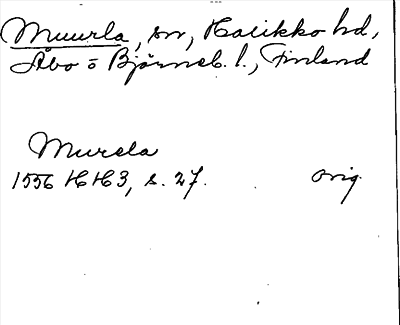 Muurla, sn, Halikko hd,
Åbo o Björneb. l., Finland
Murela
1556 HH3, s. 27. orig.